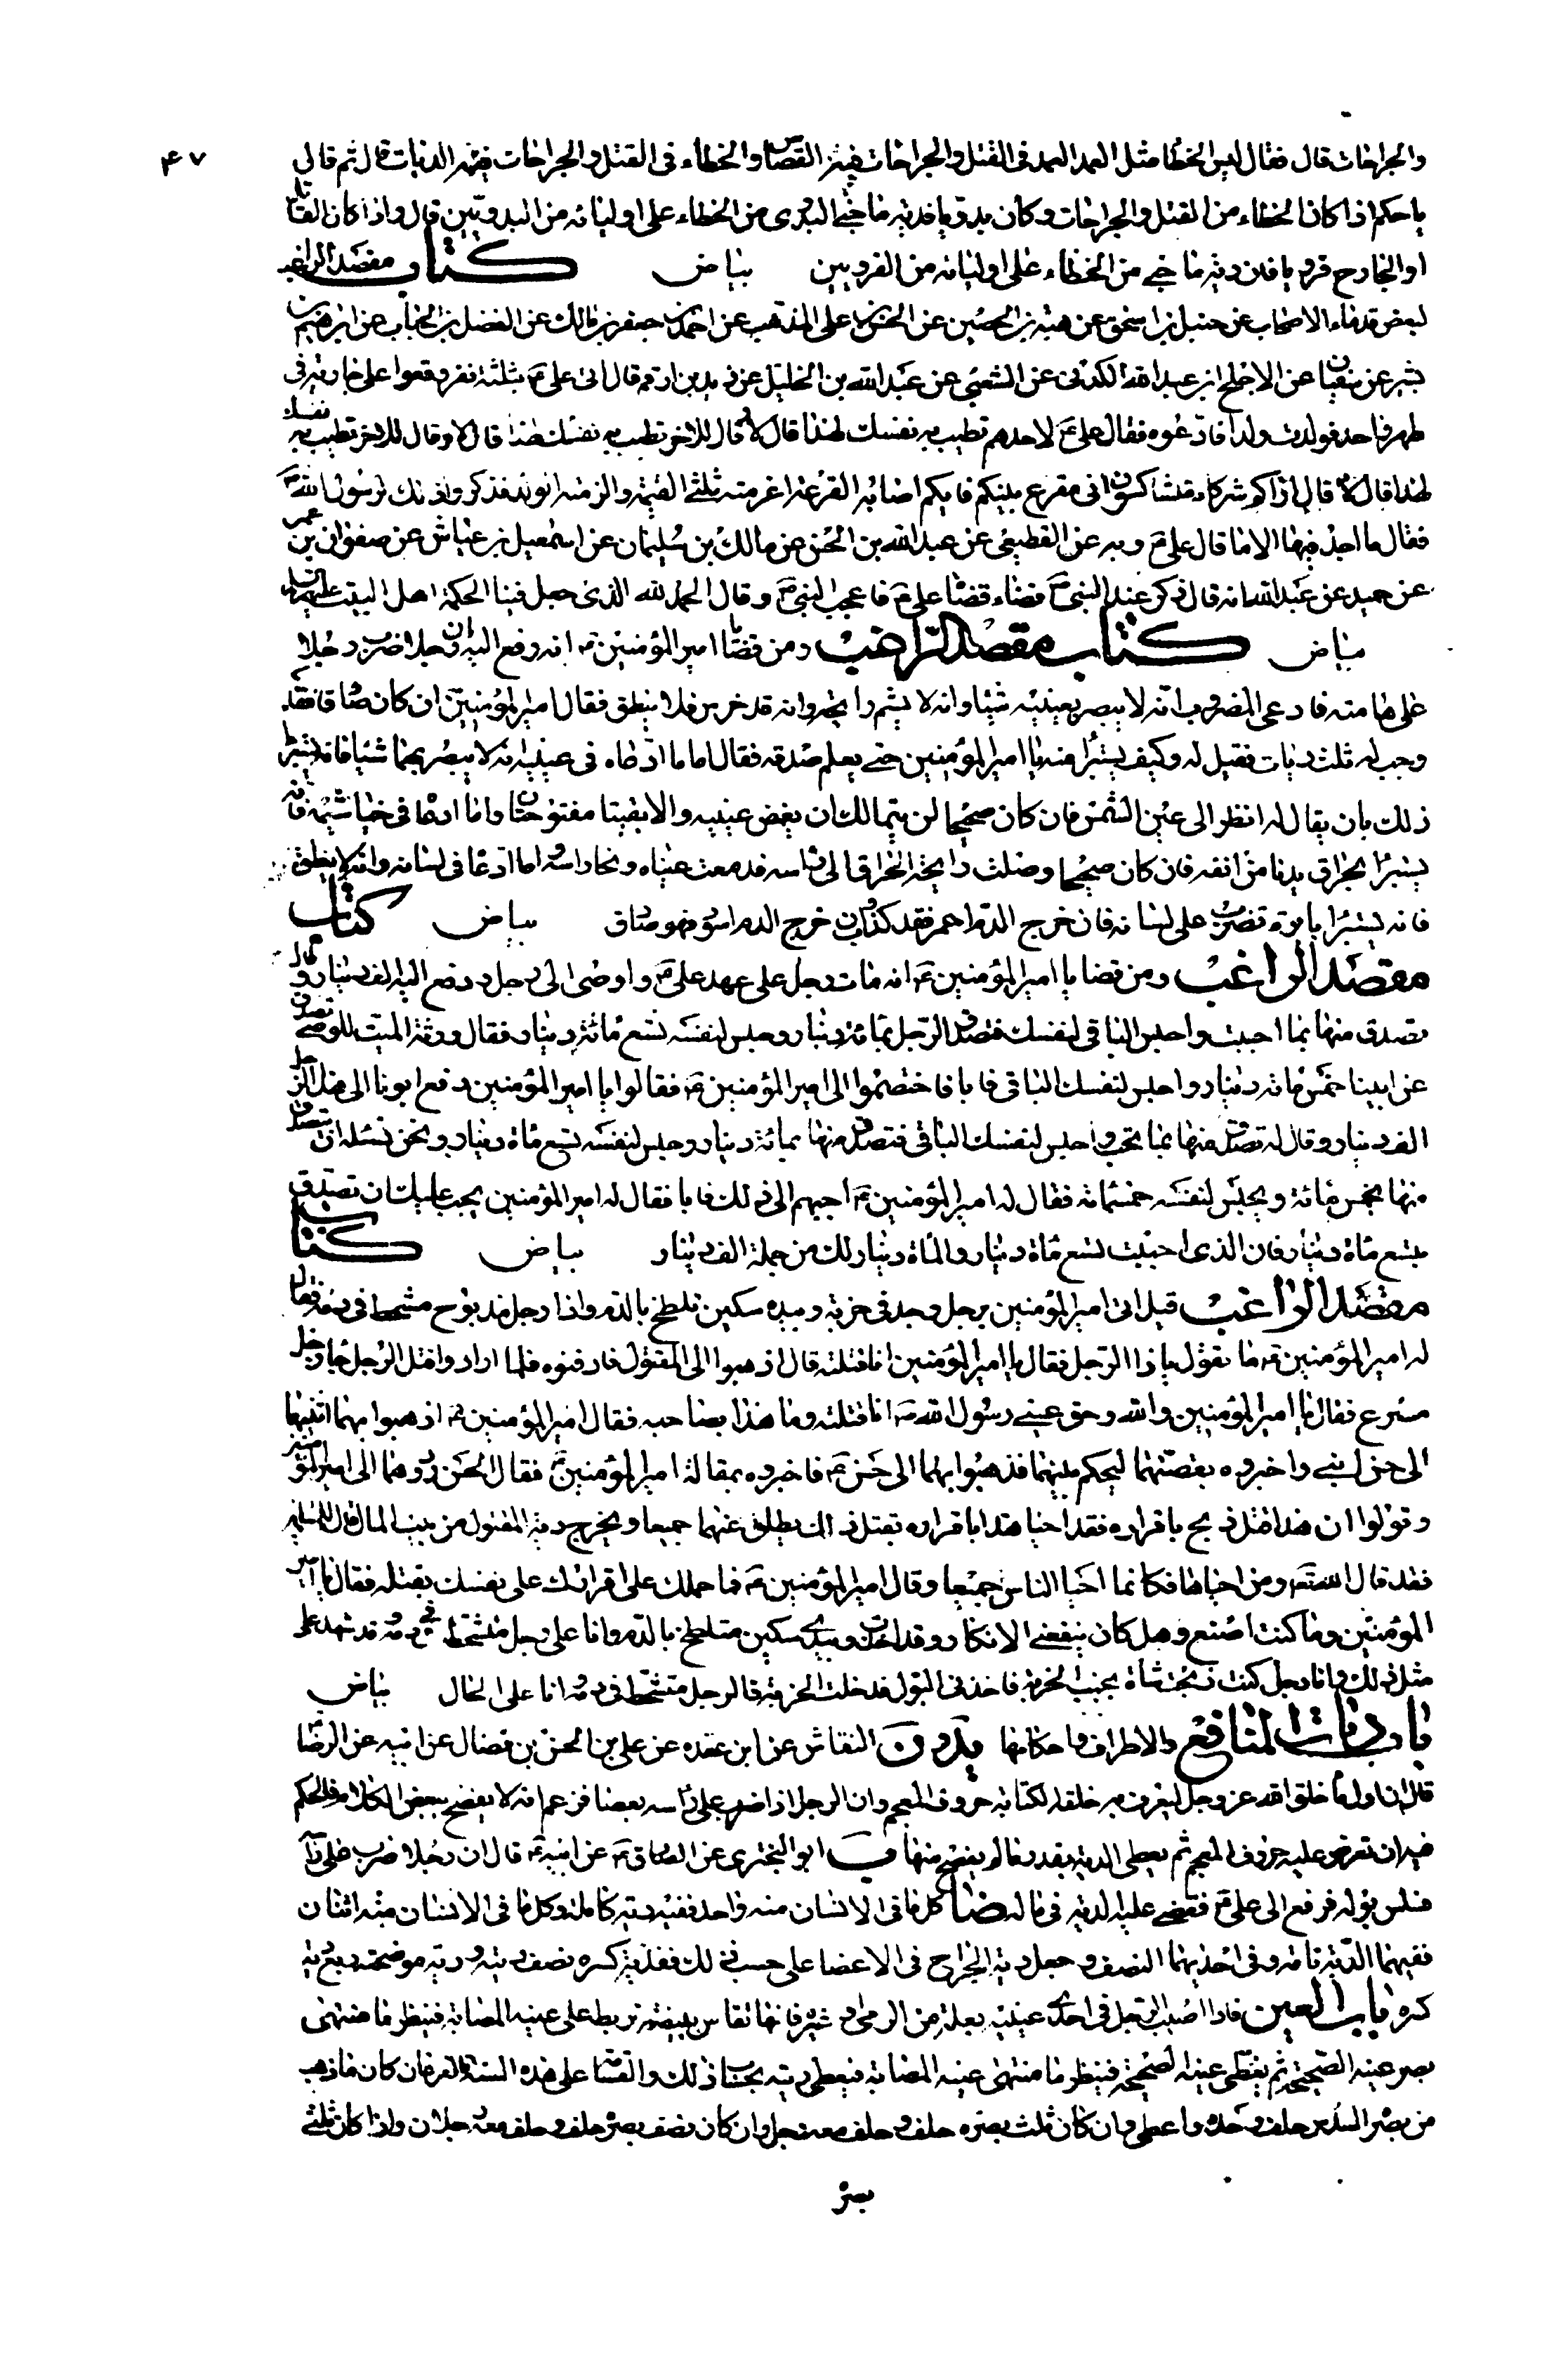 ۴۷
والجراحات قال فقال ليس الخطا مثل العمد العمد فى القتل والجراحات فيهما القصاص والخطاء فى القتل والجراحات فيهم الديات قال ثم قال
ياحكم اذا كان الخطاء من القتل والجراحات وكان بدويا فدية ما جنى البدوى من الخطاء على اوليائه من البدويين قال واذا كان القاتل
او الجارح قرويا فان دية ما جنى من الخطاء على اوليائه من القرويين بياض كتاب مقصد الراغب
لبعض قدماء الاصحاب عن حنبل بن اسحق عن هبة بن الحصين عن الحسن بن على المذهب عن احمد بن جعفر بن مالك عن الفضل بن الحباب عن ابرهيم بن
بشير عن سفيان عن الاجلح بن عبد الله الكندى عن الشعبى عن عبد الله بن الخليل عن زيد بن ارقم قال اتى على ع بثلثة نفر وقعوا على جارية فى
طهر واحد فولدت ولدا فادعوه فقال على ع لاحدهم تطيب به نفسك لهذا قال لا قال للاخر تطيب به نفسك لهذا قال لا وقال للاخر تطيب به نفسك
لهذا قال لا قال اراكم شركاء متشاكسون انى مقرع بينكم فايكم اصابه القرعة اغرمته ثلثى القيمة والزمته الولد فذكروا ذلك لرسول الله ص
فقال ما اجد فيها الا ما قال على ع وبه عن القطيعى عن عبد الله بن الحسن عن مالك بن سليمان عن اسمعيل بن عياش عن صفوان بن عمر
عن حميد عن عبد الله انه قال ذكر عند النبى ص قضاء قضا على ع فاعجب النبى ص وقال الحمد لله الذى جعل فينا الحكمة اهل البيت عليهم السلام
بياض كتاب مقصد الراغب ومن قضايا امير المؤمنين ع انه رفع اليه ان رجلا ضرب رجلا
على هامته فادعى المضروب انه لا يبصر بعينيه شيئا وانه لا يشم رايحة وانه قد خرس فلا ينطق فقال امير المؤمنين ان كان صادقا فقد
وجب له ثلث ديات فقيل له وكيف يستبرأ منه يا امير المؤمنين حتى يعلم صدقه فقال اما ما ادعاه فى عينيه انه لا يبصر بهما شيئا فانه يستبرأ
ذلك بان يقال له انظر الى عين الشمس فان كان صحيحا لن يتمالك ان يغمض عينيه والا بقيتا مفتوحتان واما ادعا فى خياشيمه فانه
يستبرأ بحراق يدنا من انفه فان كان صحيحا وصلت رايحة الحراق الى راسه فدمعت عيناه ونحا راسه اما ادعا فى لسانه وانه لا ينطق
فانه يستبرأ بابرة تضرب على لسانه فان خرج الدم احمر فقد كذب وان خرج الدم اسود فهو صادق بياض كتاب
مقصد الراغب ومن قضايا امير المؤمنين ع انه مات رجل على عهد على ع واوصى الى رجل ودفع اليه الف دينار وقال
تصدق منها بما احببت واحبس الباقى لنفسك فتصدق الرجل بمائة دينار وحبس لنفسه تسع مائة دينار فقال ورثة الميت للوصى تصدق
عن ابينا خمس مائة دينار واحبس لنفسك الباقى فابا فاختصموا الى امير المؤمنين ع فقالوا يا امير المؤمنين دفع ابونا الى هذا الرجل
الف دينار وقال له تصدق منها بما تحب واحبس لنفسك الباقى فتصدق منها بمائة دينار وحبس لنفسه تسع مائة دينار ونحن نسئله ان يتصدق
منها بخمس مائة ويحبس لنفسه خمسمائة فقال له امير المؤمنين ع اجبهم الى ذلك فابا فقال له امير المؤمنين يجب عليك ان تصدق
بتسع مائة دينار فان الذى احببت تسع مائة دينار والمائة دينار لك من جملة الف دينار بياض كتاب
مقصد الراغب قيل اتى امير المؤمنين برجل وجد فى خربة وبيده سكين تلطخ بالدم واذا رجل مذبوح متشحط فى دمه فقال
له امير المؤمنين ع ما تقول يا ذا الرجل فقال يا امير المؤمنين انا قتلته قال اذهبوا الى المقتول فادفنوه فلما ارادوا قتل الرجل جاء رجل
مسرع فقال يا امير المؤمنين والله وحق عينى رسول الله ص انا قتلته وما هذا بصاحبه فقال امير المؤمنين ع اذهبوا بهما اثنيهما
الى حسن ابنى واخبروه بقصتهما ليحكم بينهما فذهبوا بهما الى حسن ع فاخبروه بمقالة امير المؤمنين ع فقال الحسن ردوهما الى امير المؤمنين
وقولوا ان هذا قتل ذبح باقراره فقد احيا هذا باقراره بقتل ذلك يطلق عنهما جميعا ويخرج دية المقتول من بيت المال
فقد قال الله تع ومن احياها فكانما احيا الناس جميعا وقال امير المؤمنين ع فما حملك على اقرارك على نفسك بقتله فقال يا امير
المؤمنين وما كنت اصنع وهل كان ينفعنى الانكار وقد اخذت وبيدى سكين متلطخ بالدم وانا على رجل متشحط فى دمه قد شهد على
مثل ذلك وانا رجل كنت ذبحت شاة بجنب الخربة فاخذنى البول فدخلت الخربة فالرجل متشحط فى دمه انا على الحال بياض
باب ديات المنافع والاطراف واحكامها يد ون النقاش عن ابن عقده عن على بن الحسن بن فضال عن ابيه عن الرضا
قال ان اول ما خلق الله عز وجل ليعرف به خلقه لكتابة حروف المعجم وان الرجل اذا ضرب على راسه بعصا فزعم انه لا يفصح ببعض الكلام فالحكم
فيه ان تعرض عليه حروف المعجم ثم يعطى الدية بقدر ما لم يفصح منها ب ابو البخترى عن الصادق ع عن ابيه ع قال ان رجلا ضرب على راسه
فسلس بوله فرفع الى على ع فقضى عليه الدية فى ماله ضا كل ما فى الانسان منه واحد ففيه دية كاملة وكل ما فى الانسان منه اثنان
ففيهما الدية تامة وفى احديهما النصف وجعل دية الجراح فى الاعضا على حسب ذلك فدية كسره نصف ديته ودية موضحته ربع دية
كسره باب العين فاذا اصيب الرجل فى احدى عينيه بعلة من الرمى او غيره فانها تقاس ببيضة تربط على عينه المصابة فينظر ما منتهى
بصر عينه الصحيحة ثم يغطى عينه الصحيحة فينظر ما منتهى عينه المصابة فيعطى ديته بحساب ذلك والقسامة على هذه الستة نفر فان كان ما ذهب
من بصره السدس حلف وحده واعطى وان كان ثلث بصره حلف وحلف معه رجل وان كان نصف بصره حلف وحلف معه رجلان واذا كان ثلثى
بصره